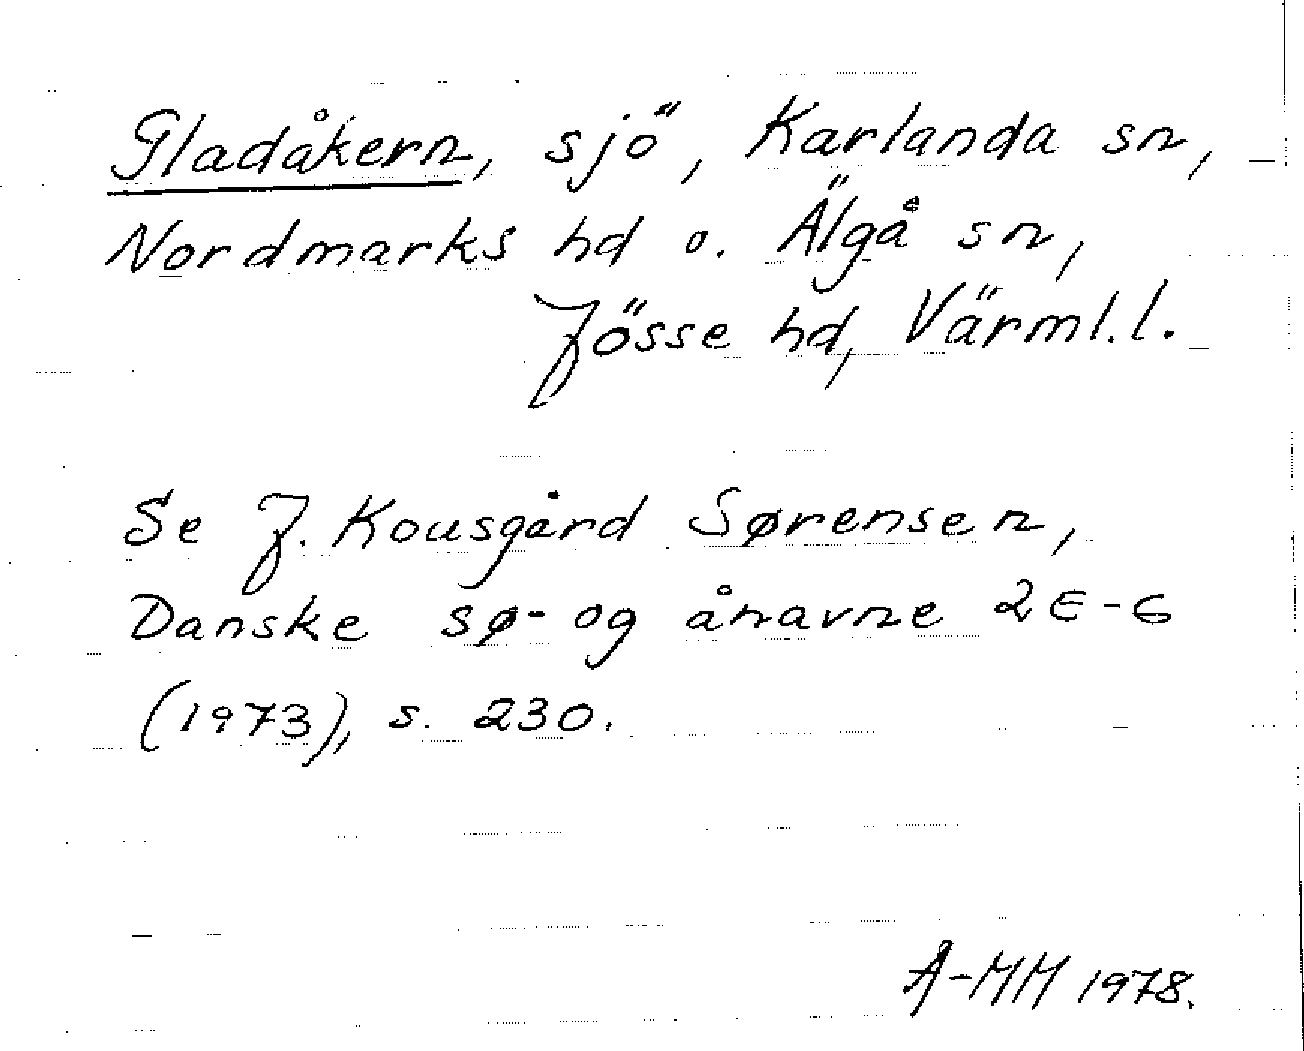 Gladåkern, sjö, Karlanda sn,
Nordmarks hd o. Älgå sn,
Jösse hd, Värml. l.
Se J. Kousgård Sørensen,
Danske sø- og ånavne 2 E-G
(1973), s. 230.
Å-MM 1978.